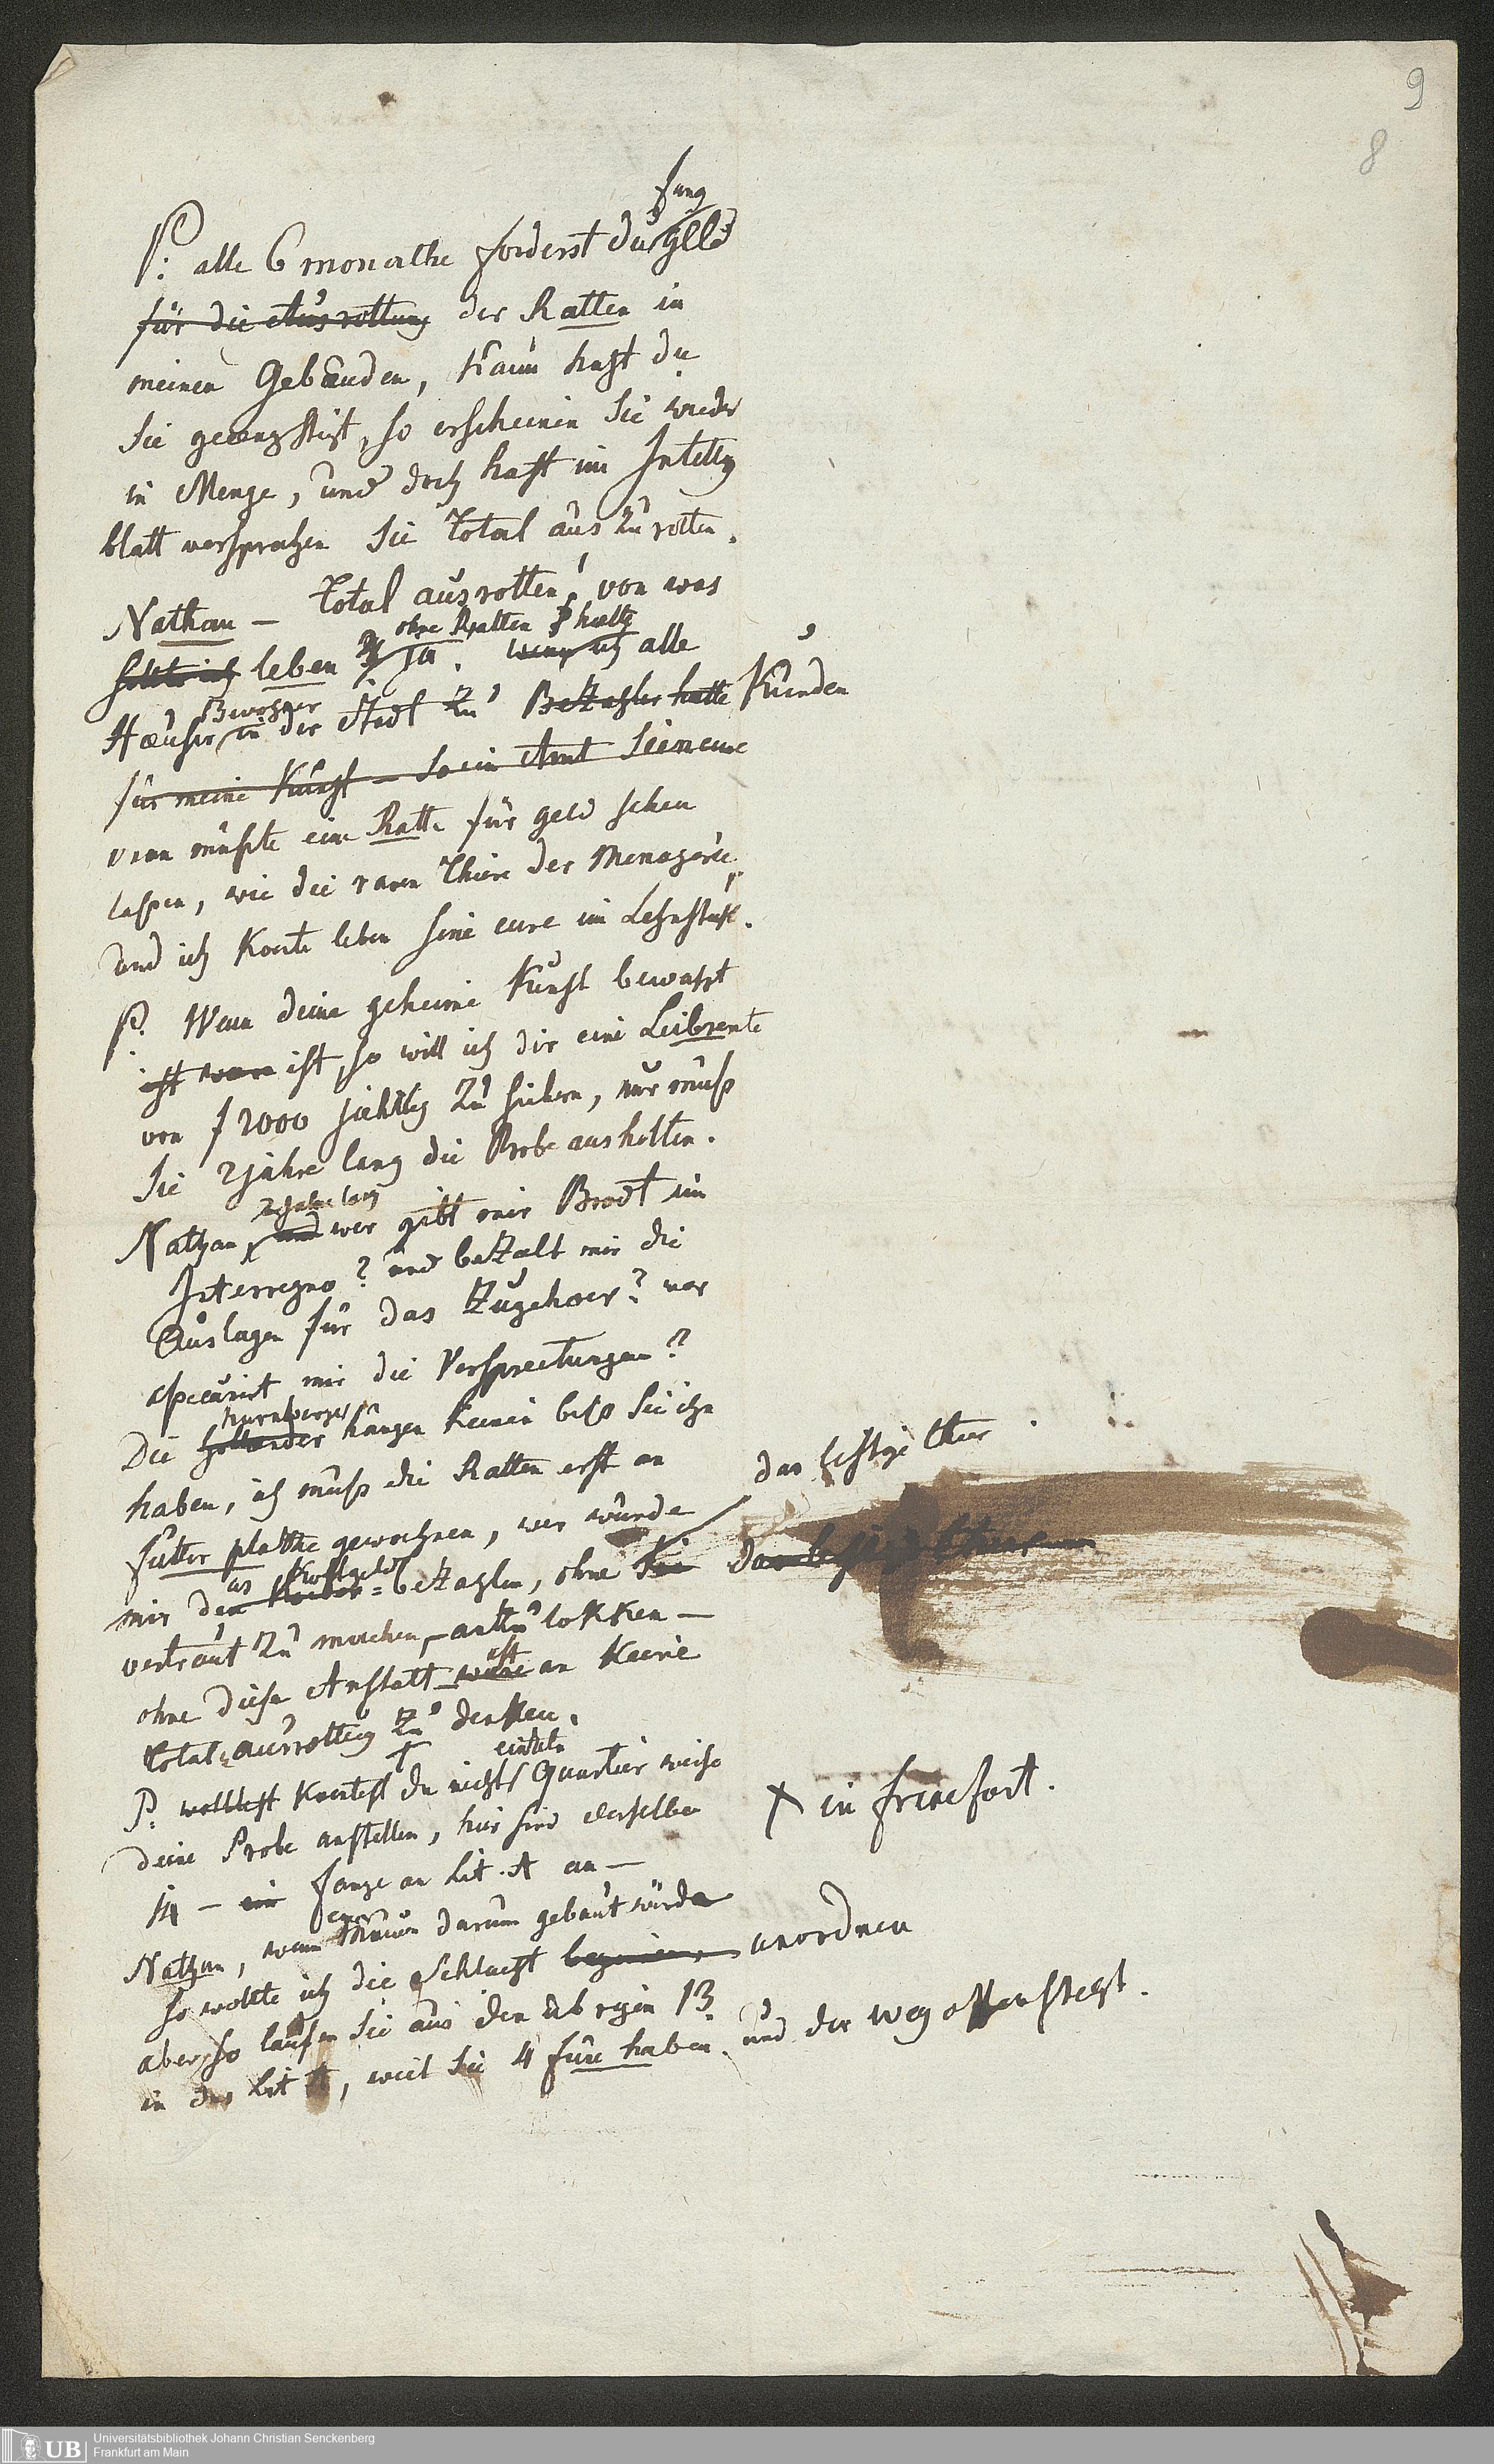 9
8
fang
P: alle 6 monathe forderst du gelld
für die Ausrottung der Ratten in
meinen Gebäuden, kaum hast du
Sie geaengstigt, so erscheinen Sie wieder
in Menge, und doch hast im Intellig
blatt versprochen Sie total aus zu rotten.
Nathan — Total ausrotten! von was
ohne Ratten
sollte ich leben ? Ja. wenn ich alle
Bewohner
Häuser in der Stadt zu Bezahler hatte Kunden
für meine Kunst — so ein Amt
man müßte eine Ratte für geld sehen
laßen, wie die raren Thiere der Menagerie,
und ich koente leben sine cure im Lehnstuhl.
P. Wenn deine geheime Kunst bewaehrt
ist ist, so will ich dir eine Leibrente
von f 2000 jährlich zu sichern, nur muß
Sie 2 jahre lang die Probe aushalten.
2 Jahre lang
Nathan, und wer gibt mir Brodt im
Interregno? und bezalt mir die
Auslagen für das Zugehoer? wer
aßecurirt mir die Versprechungen?
Nurnberger
Die hollander hängen keinen biß Sie ihn
haben, ich muß die Ratten erst an
das lestige thier
futter platze gewoehnen, wer würde
as Kostgeld
mir den bezahlen, ohne Sie
vertraut zu machen, anzulokken —
ist
ohne diese Anstalt wäre an keine
total ausrottung zu denken.
einzeln
P: wolltest koentest du nicht Quartier weise
+ in francfort.
deine Probe anstellen, hier sind derselben
14 — ein fange an Lit. A an —
eine
Nathan, wenn Mauer darum gebaut würde
so wollte ich die Schlacht anordnen
aber so laufen Sie aus den übrigen 13
in das Lit A, weil Sie 4 füse haben. und der weg offen steht.
UB
Universitätsbibliothek Johann Christian Senckenberg
Frankfurt am Main